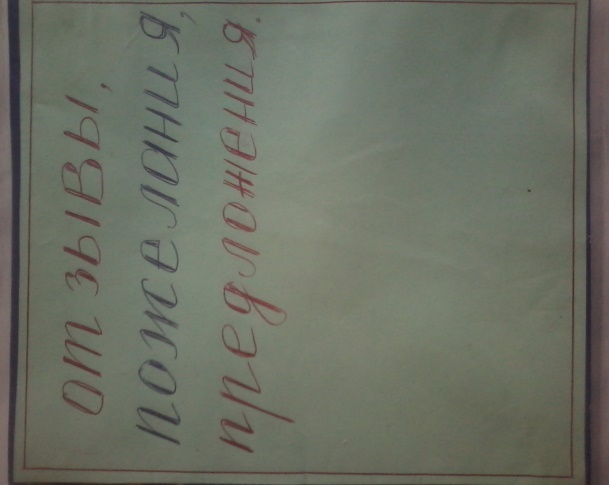 отзывы,
пожелания,
предложения.